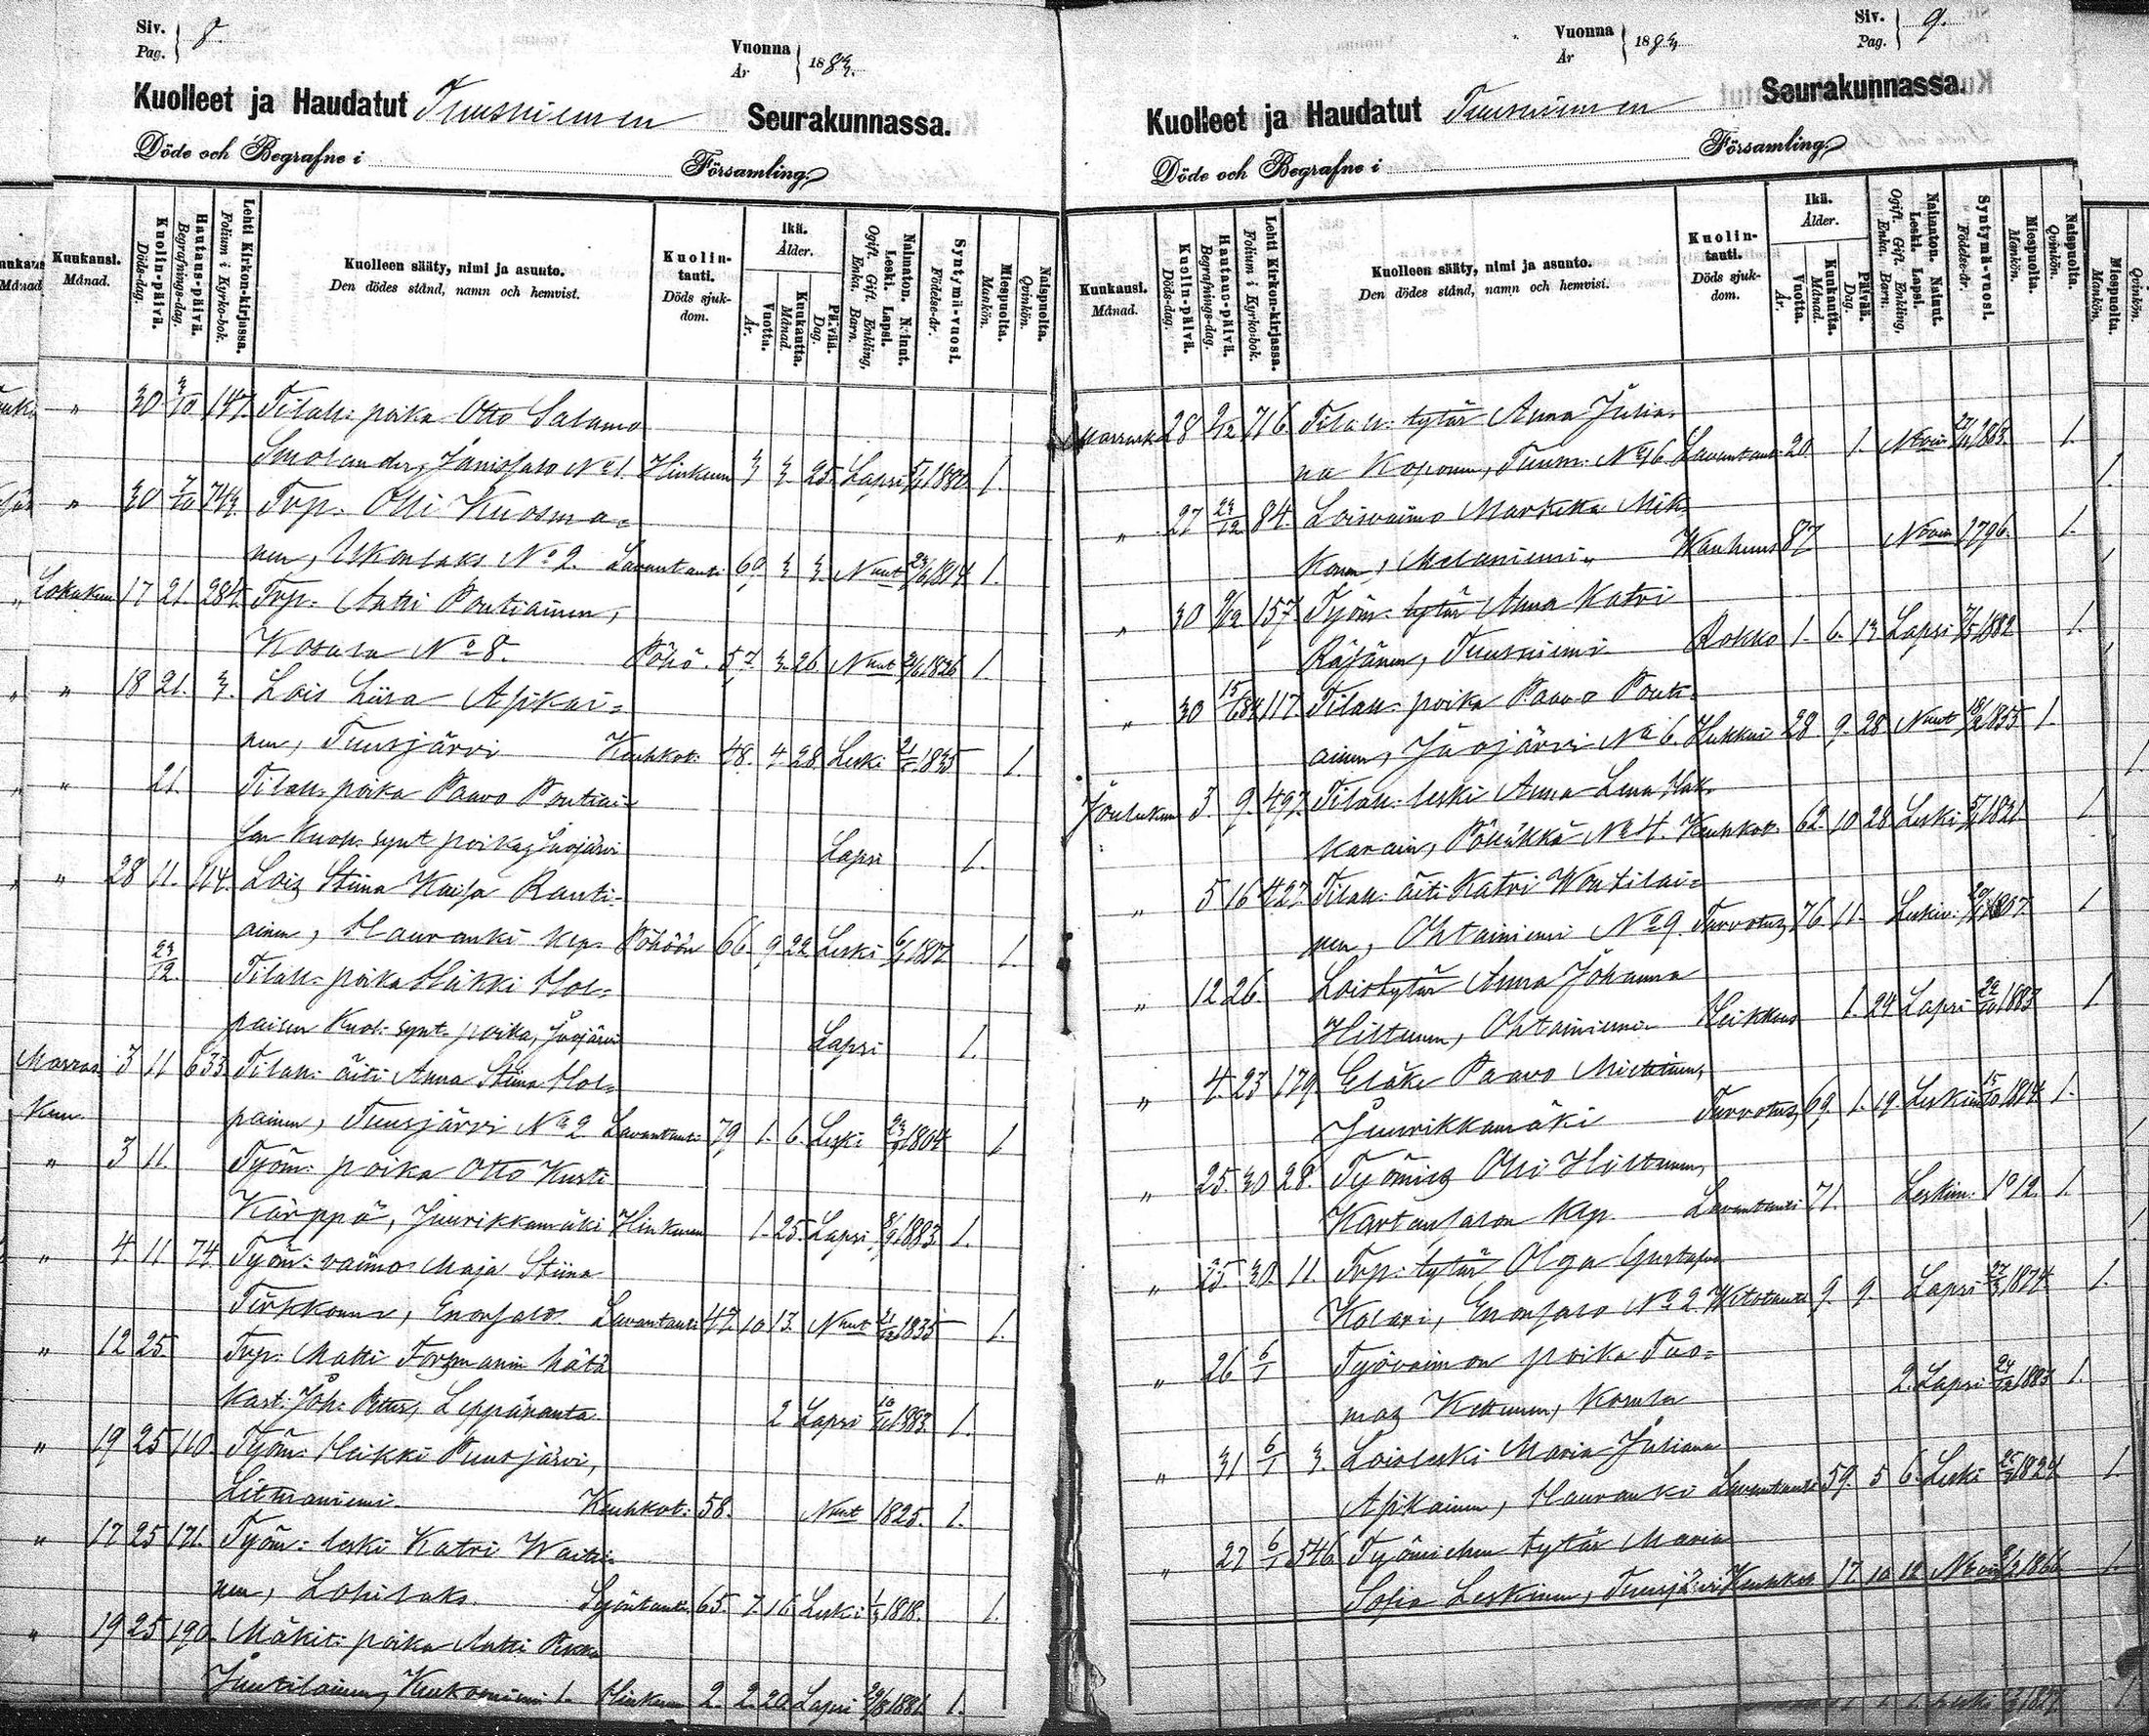 Siv. Pag. } 8.
Vuonna År } 1883.
Kuolleet ja Haudatut Tuusniemen Seurakunnassa.
Döde och Begrafne i Församling
Kuukausi. Månad.
Kuolin-päivä. Döds-dag.
Hautaus-päivä. Begrafnings-dag.
Lehti Kirkon-kirjassa. Folium i Kyrko-bok.
Kuolleen sääty, nimi ja asunto. Den dödes stånd, namn och hemvist.
Kuolin-tauti. Döds sjuk-dom.
Ikä. Ålder.
Vuotta. År.
Kuukautta. Månad.
Päivää. Dag.
Naimaton. Nainut. Leski. Lapsi. Ogift. Gift. Enkling, Enka. Barn.
Syntymä-vuosi. Födelse-år.
Miespuolta. Mankön.
Naispuolta. Qvinkön.
" 30 3/10 147. Tilall: poika Otto Salamo
Smolander, Jänissalo No 1. Hinkuun 3 3 25 Lapsi 1880 1.
" 30 7/10 Tvp. Olli Kuosma=
nen, Ukonlaks No 2. Lavantauti 69 3 3. Nnut 1814 1.
Lokakuu 17 21. 284. Tvp. Antti Pontiainen,
Kosula No 8. Pöhö. 57. 3. 26 Nnut 1826 1.
" 18 21. 3. Lois Liisa Asikai=
nen, Tuusjärvi Keuhkot. 48. 4 28 Leski 1835 1.
" 21. Tilall: poika Paavo Pontiai-
sen Kuoll. synt poika, Juojärvi Lapsi 1.
" 28 11. 114. Lois Stiina Kaisa Rauti-
ainen, Hauranki Kep. Pöhöön 66. 9 22 Leski 1817 1.
23/12. Tilall: poika Heikki Hol=
paisen Kuol: synt. poika, Juojärvi Lapsi 1.
Marras 3 11 633 Tilall: äiti Anna Stiina Hol=
Kuu painen, Tuusjärvi No 2 Lavantauti 79 1. 6. Leski 1804 1
" 3 11. Työm: poika Otto Kusti
Kärppä, Juurikkamäki Hinkuun 1. 25. Lapsi 1883 1.
" 4 11 74. Työm: vaimo Maja Stiina
Tirkkonen, Enonsalo. Lavantauti 47 10 13. Nnut 1835 1.
" 12 25. Tvp: Matti Forsmanin hätä
Kast: Joh: Petter, Leppäranta. 2 Lapsi 10/11 1883. 1.
" 19 25 110. Työm: Heikki Tuusjärvi,
Litmaniemi. Keuhkot: 58. Nnut 1825. 1.
" 17 25 171. Työm: leski Katri Waiti-
nen, Lohilaks. Syöntauti. 65. 7. 16 Leski 1/3 1818. 1.
" 19 25 190. Mäkit: poika Antti Pekka
Juutilainen, Kiukoniemi 1. Hinkuun 2. 2. 20 Lapsi 1881. 1.
Siv. Pag. } 9.
Vuonna År } 1883
Kuolleet ja Haudatut Tuusniemen Seurakunnassa.
Döde och Begrafne i Församling
Kuukausi. Månad.
Kuolin-päivä. Döds-dag.
Hautaus-päivä. Begrafnings-dag.
Lehti Kirkon-kirjassa. Folium i Kyrko-bok.
Kuolleen sääty, nimi ja asunto. Den dödes stånd, namn och hemvist.
Kuolin-tauti. Döds sjuk-dom.
Ikä. Ålder.
Vuotta. År.
Kuukautta. Månad.
Päivää. Dag.
Naimaton. Nainut. Leski. Lapsi. Ogift. Gift. Enkling, Enka. Barn.
Syntymä-vuosi. Födelse-år.
Miespuolta. Mankön.
Naispuolta. Qvinkön.
Marrask 28 9/12 716 Tilall: tytär Anna Julia-
na Koponen, Tuusn: No 16 Lavantauti 20 1. Ntoin 27/11 1863. 1.
" 27 23/12 84. Loisvaimo Marketta Mik-
konen, Melaniemi. Wanhuus 87 Ntoin 1796. 1.
" 30 9/12 157. Työm: tytär Anna Katri
Räsänen, Tuusniemi Rokko 1. 6. 13 Lapsi 1882 1.
" 30 117. Tilall: poika Paavo Ponti-
ainen, Juojärvi No 6. Hukkui 28 9. 28 Nnut 1855 1.
Joulukuu 3. 9. 497. Tilall: leski Anna Lena Hak-
karain, Pölläkkä No 4. Keuhkot. 62. 10 28 Leski 1821. 1.
" 5 16 427. Tilall: äiti Katri Woutilai=
nen, Ohtainiemi No 9. Turvotus 76 11. Leskiv. 1807. 1
" 12 26. Loistytär Anna Johanna
Hiltunen, Ohtainiemi Heikkous 1. 24 Lapsi 1883 1
" 4. 23 179. Eläke Paavo Miettinen,
Juurikkamäki Turvotus 69. 1. 19. Leskim 15/10 1814. 1.
" 25. 30 28. Työmies Olli Hiltunen,
Kartansalon Kep. Lavantauti 71. Leskim. 1812. 1.
" 25. 30. 11. Tvp: tytär Olga Gustafva
Kolari, Enonsalo No 2. Wetotauti 9. 9. Lapsi 1874. 1.
" 26 6/1 Työvaimon poika Tuo=
mas Kettunen, Kosula 2. Lapsi 24/12 1883 1.
" 31 6/1 3. Loisleski Maria Juliana
Asikainen, Hauranki Lavantauti 59. 5 6. Leski 25/7 1824. 1.
" 27 6/1 546 Työmiehen tytär Maria
Sofia Leskinen, Tuusjärvi Keuhkot 17 10 12 Ntoin 1866 1.